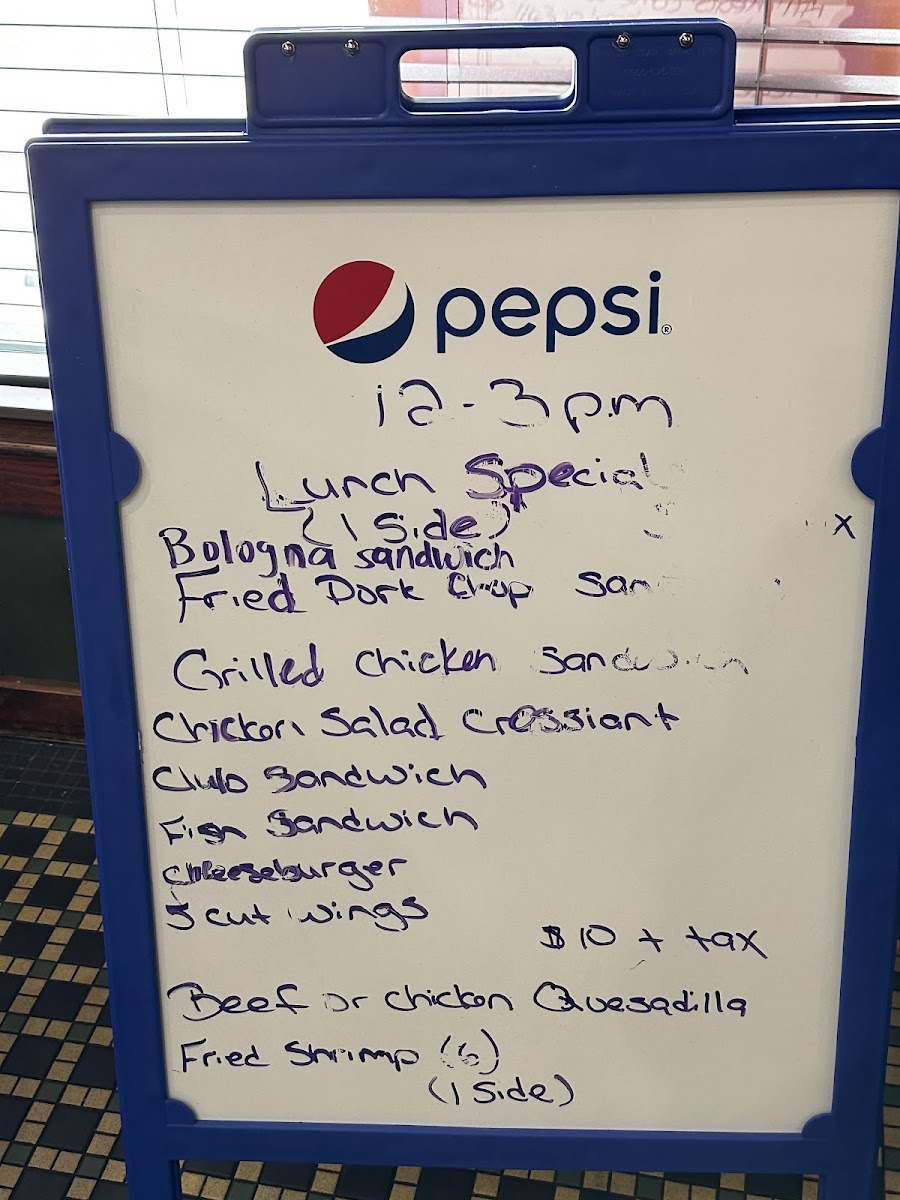 pepsi®
12-3pm
Lunch Special
(1 Side)
X
Bologna sandwich
Fried Pork Chop San
Grilled Chicken Sandwich
Chicken Salad Crossiant
Club Sandwich
Fish Sandwich
Cheeseburger
5 cut wings
$10 + tax
Beef or Chicken Quesadilla
Fried Shrimp (6)
(1 Side)